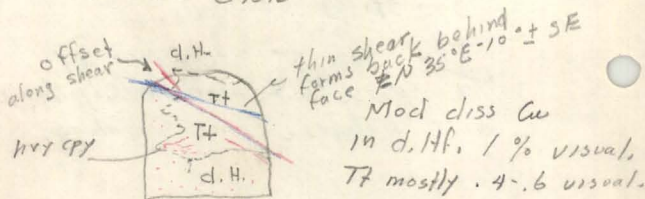 offset
along shear
d.H.
thin shear
forms back behind
face N 35°E-10°± SE
Tt
Tt
hvy cpy
d.H.
Mod diss Cu
in d.Hf. 1% visual.
Tt mostly .4-.6 visual.